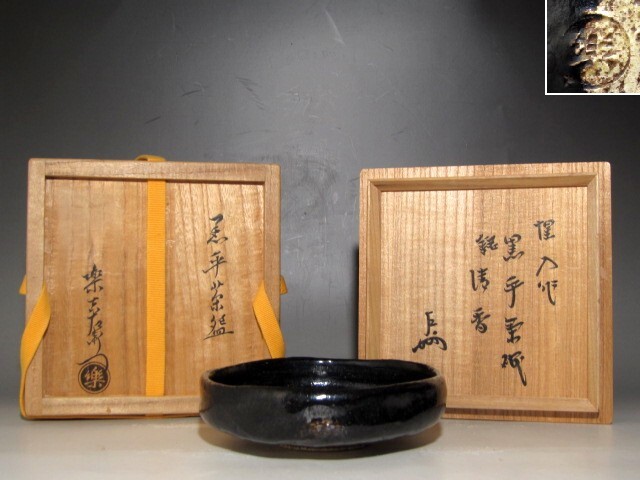 黒平茶盌
樂吉左衛門
樂
惺入作
黒平茶碗
銘清香